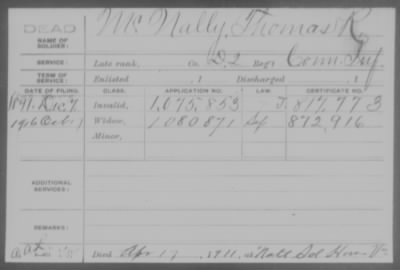 DEAD
NAME OF SOLDIER: McNally, Thomas R.
SERVICE: Late rank, Co. D, 2 Reg't Conn. Inf.
TERM OF SERVICE: Enlisted , 1 Discharged , 1
DATE OF FILING. CLASS. APPLICATION NO. LAW. CERTIFICATE NO.
1891 Dec. 7 Invalid, 1,075,853 J. 817,773
1916 Oct. Widow, 1080871 872,916
Minor,
ADDITIONAL SERVICES:
REMARKS:
Died Apr 17, 1911, at Natl Sol Home Va